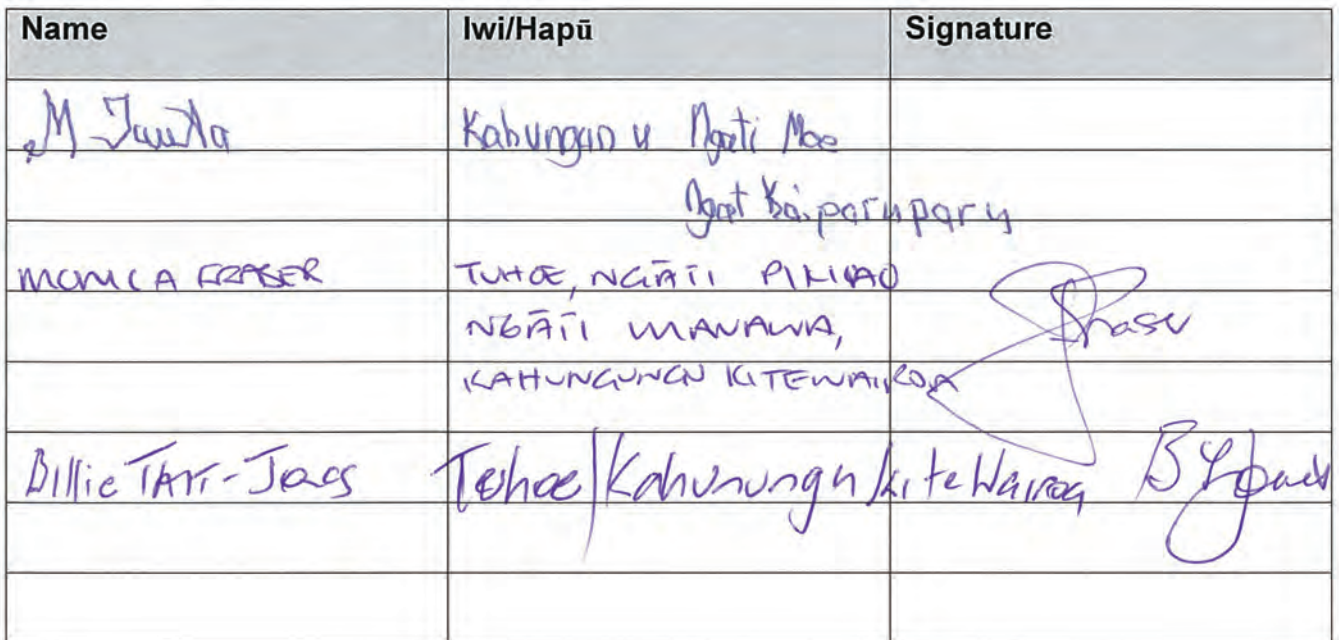 Name Iwi/Hapū Signature
M
Kahungunu Ngati Moe
Ngat Kaiparuparu
MONICA FRASER TUHOE, NGĀTI PIKIAO
NGĀTI MANAWA,
KAHUNGUNGU KITEWAIROA
Billie Tait-Jones Tuhoe/Kahunungu/kiteWairoa